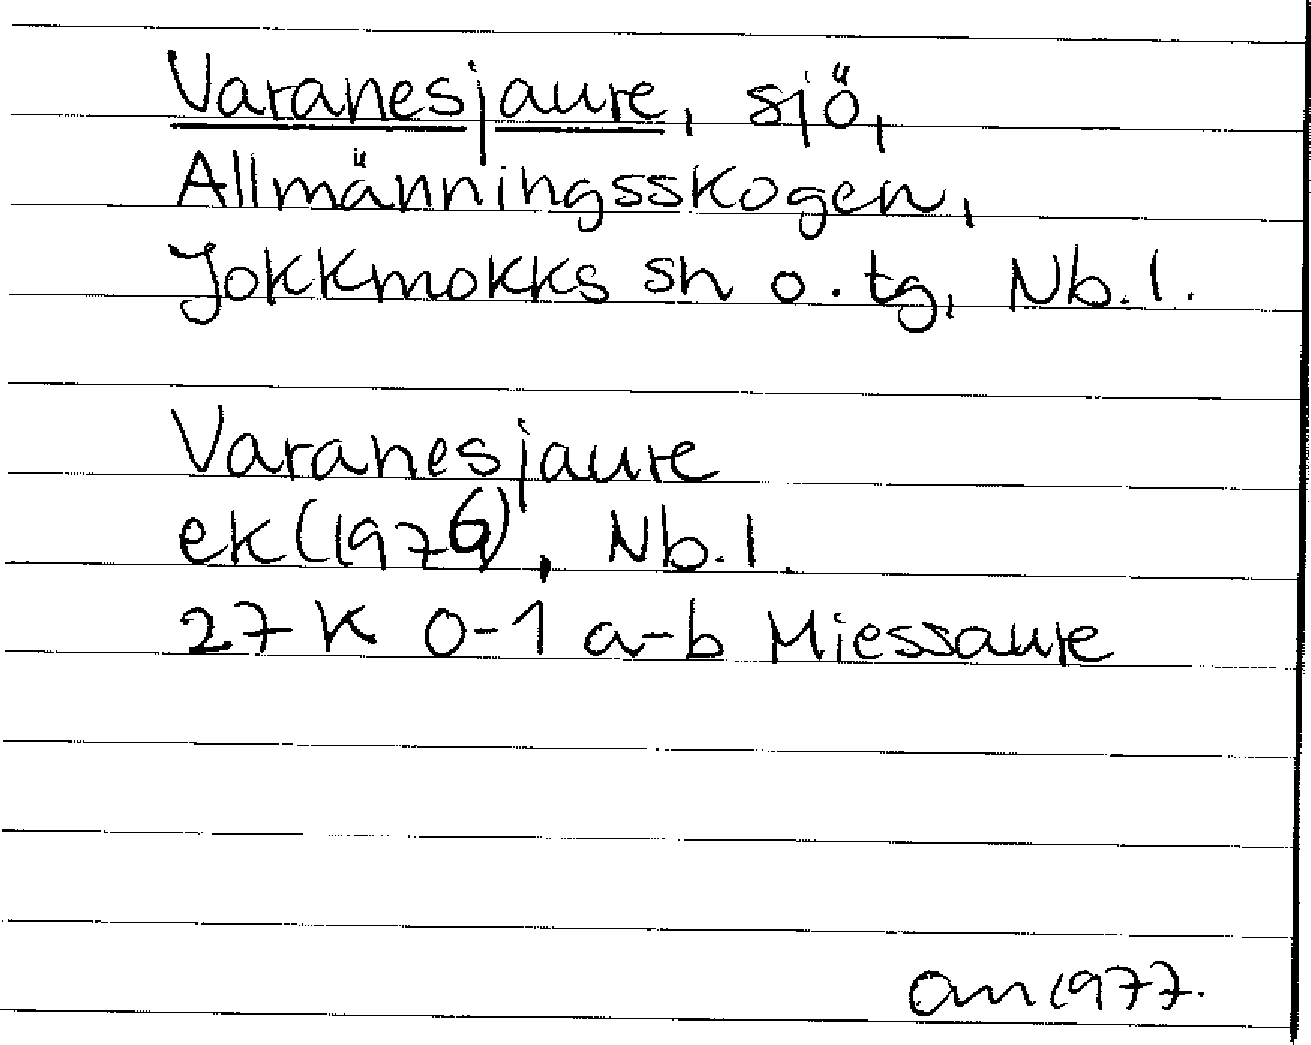 Varanesjaure, sjö,
Allmänningsskogen,
Jokkmokks sn o. tg, Nb. l.
Varanesjaure
ek (1976), Nb. l.
27 K 0-1 a-b Miessaure
am 1977.